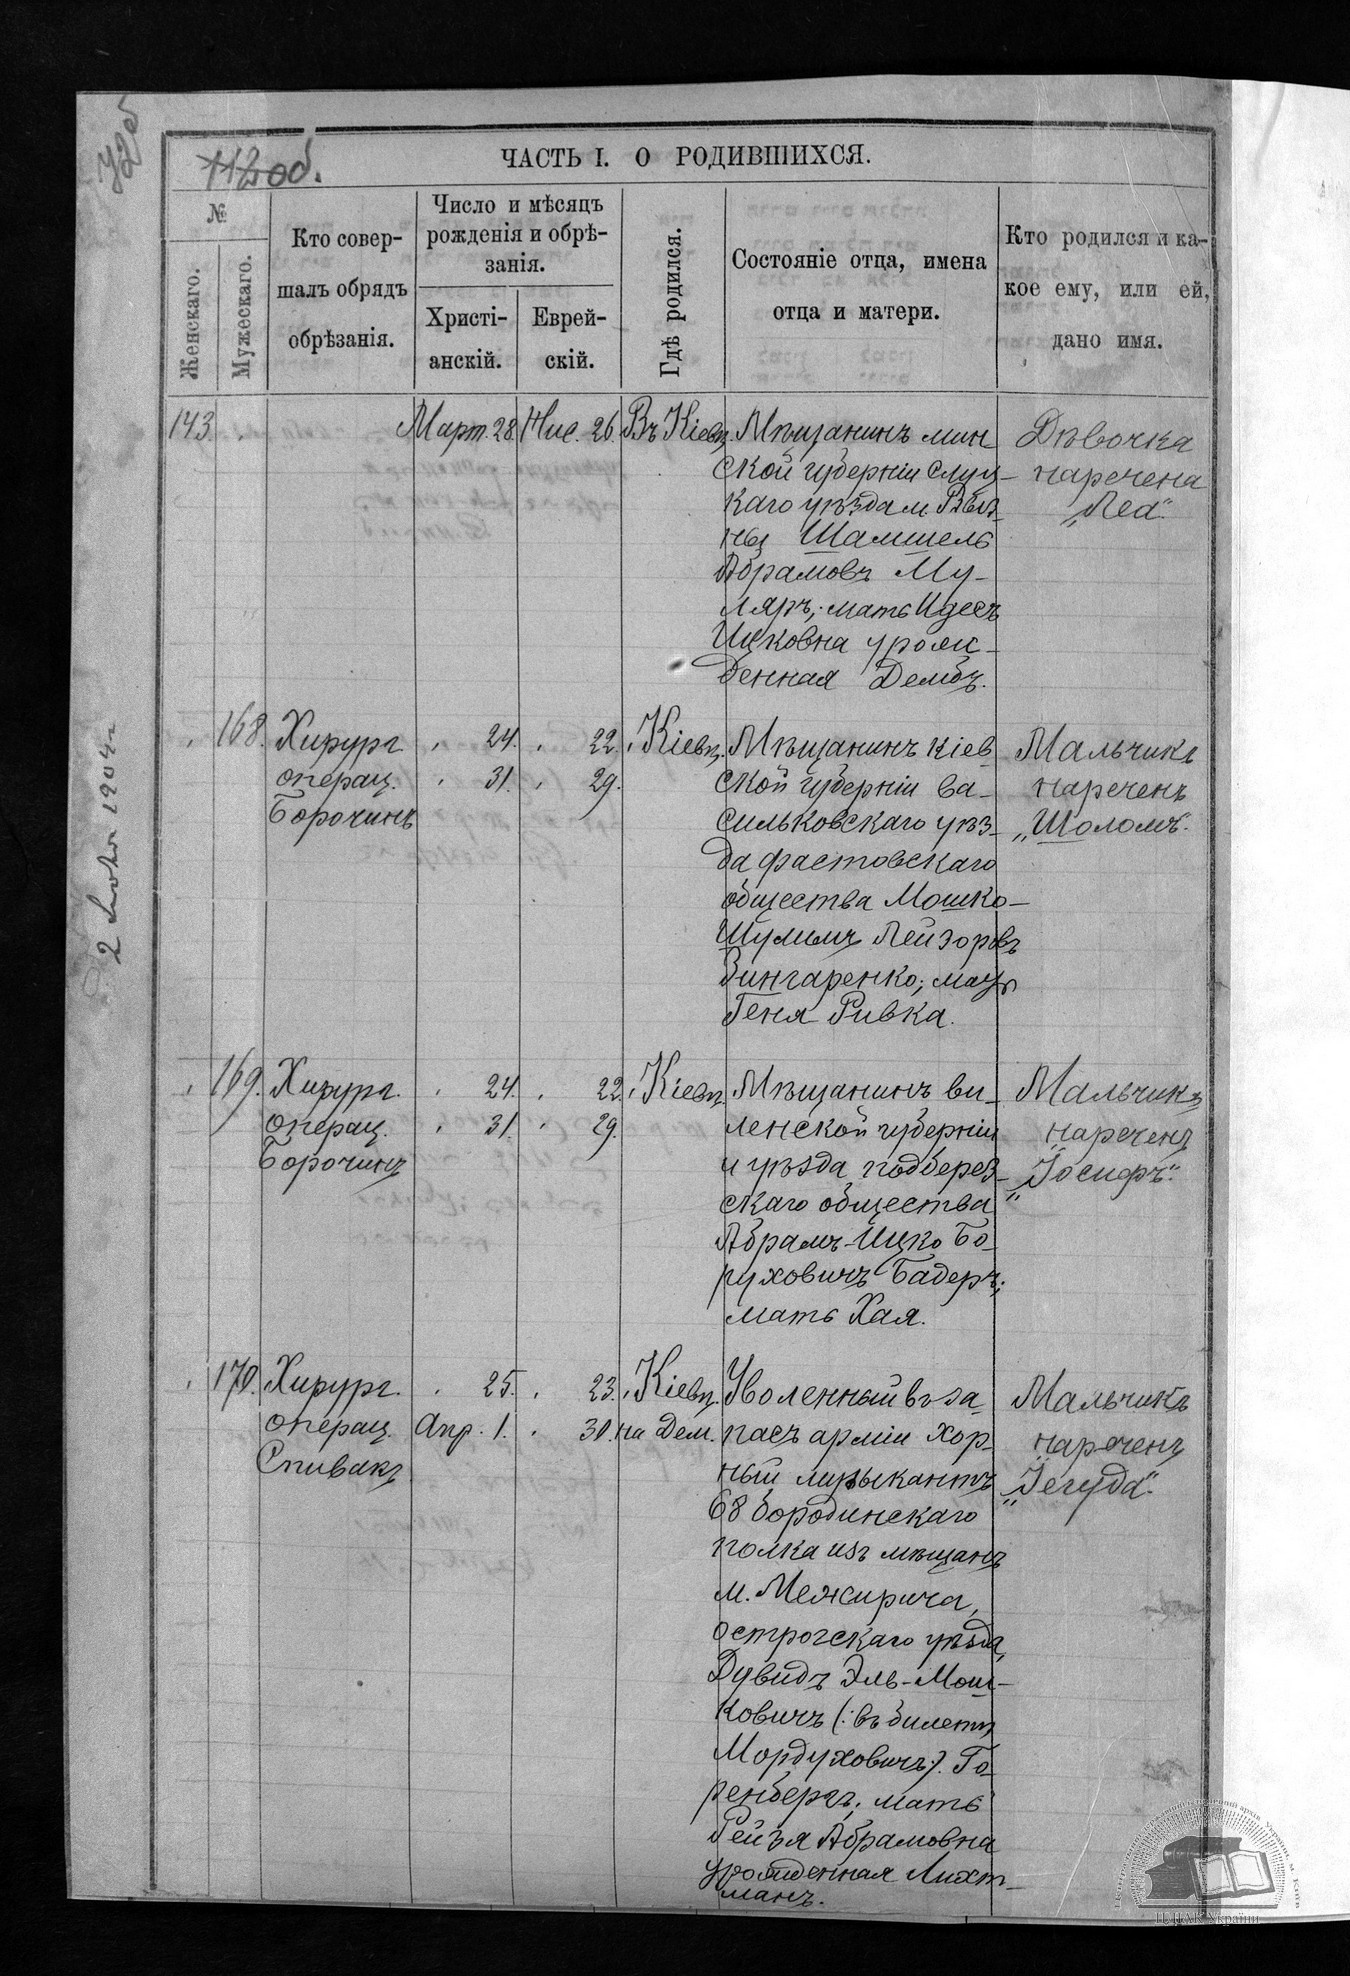 112 об.
ЧАСТЬ I. О РОДИВШИХСЯ.
№
Женскаго.
Мужескаго.
Кто совер-
шалъ обрядъ
обрѣзанія.
Число и мѣсяцъ
рожденія и обрѣ-
занія.
Христі-
анскій.
Еврей-
скій.
Гдѣ родился.
Состояніе отца, имена
отца и матери.
Кто родился и ка-
кое ему, или ей,
дано имя.
143.
Март. 28.
Нис. 26.
Въ Кіевѣ
Мѣщанинъ мин
ской губерніи слуц-
каго уѣзда м.
Шамшель
Абрамовъ Му-
ляръ; мать Идесъ
Ицковна урож-
денная Дембъ.
Дѣвочка
наречена
„Леа“.
168.
Хирург.
операц.
Борочинъ
24.
31.
22.
29.
Кіевѣ.
Мѣщанинъ кіев
ской губерніи ва-
сильковскаго уѣз-
да фастовскаго
общества Мошко-
Шулимъ Лейзоровъ
Вингаренко; мать
Геня Ривка.
Мальчикъ
нареченъ
„Шоломъ“.
169.
Хирург.
операц.
Борочинъ
24.
31.
22.
29.
Кіевѣ
Мѣщанинъ ви-
ленской губерніи
и уѣзда подберез-
скаго общества
Абрамъ-Ицко Бо-
руховичъ Бадеръ;
мать Хая.
Мальчикъ
нареченъ
„Іосифъ“.
170.
Хирург.
операц.
Спивакъ
25.
Апр. 1.
23.
30.
Кіевѣ.
на Дем.
Уволенный въ за-
пасъ арміи хор-
ный музыкантъ
68 бородинскаго
полка изъ мѣщанъ
м. Межирича,
острогскаго уѣзда,
Дувидъ Эль-Мош-
ковичъ (: въ билетѣ
Мордуховичъ:). Го-
ренбергъ; мать
Рейзя Абрамовна
урожденная Лихт-
манъ.
Мальчикъ
нареченъ
„Іегуда“.
ЦДІАК України